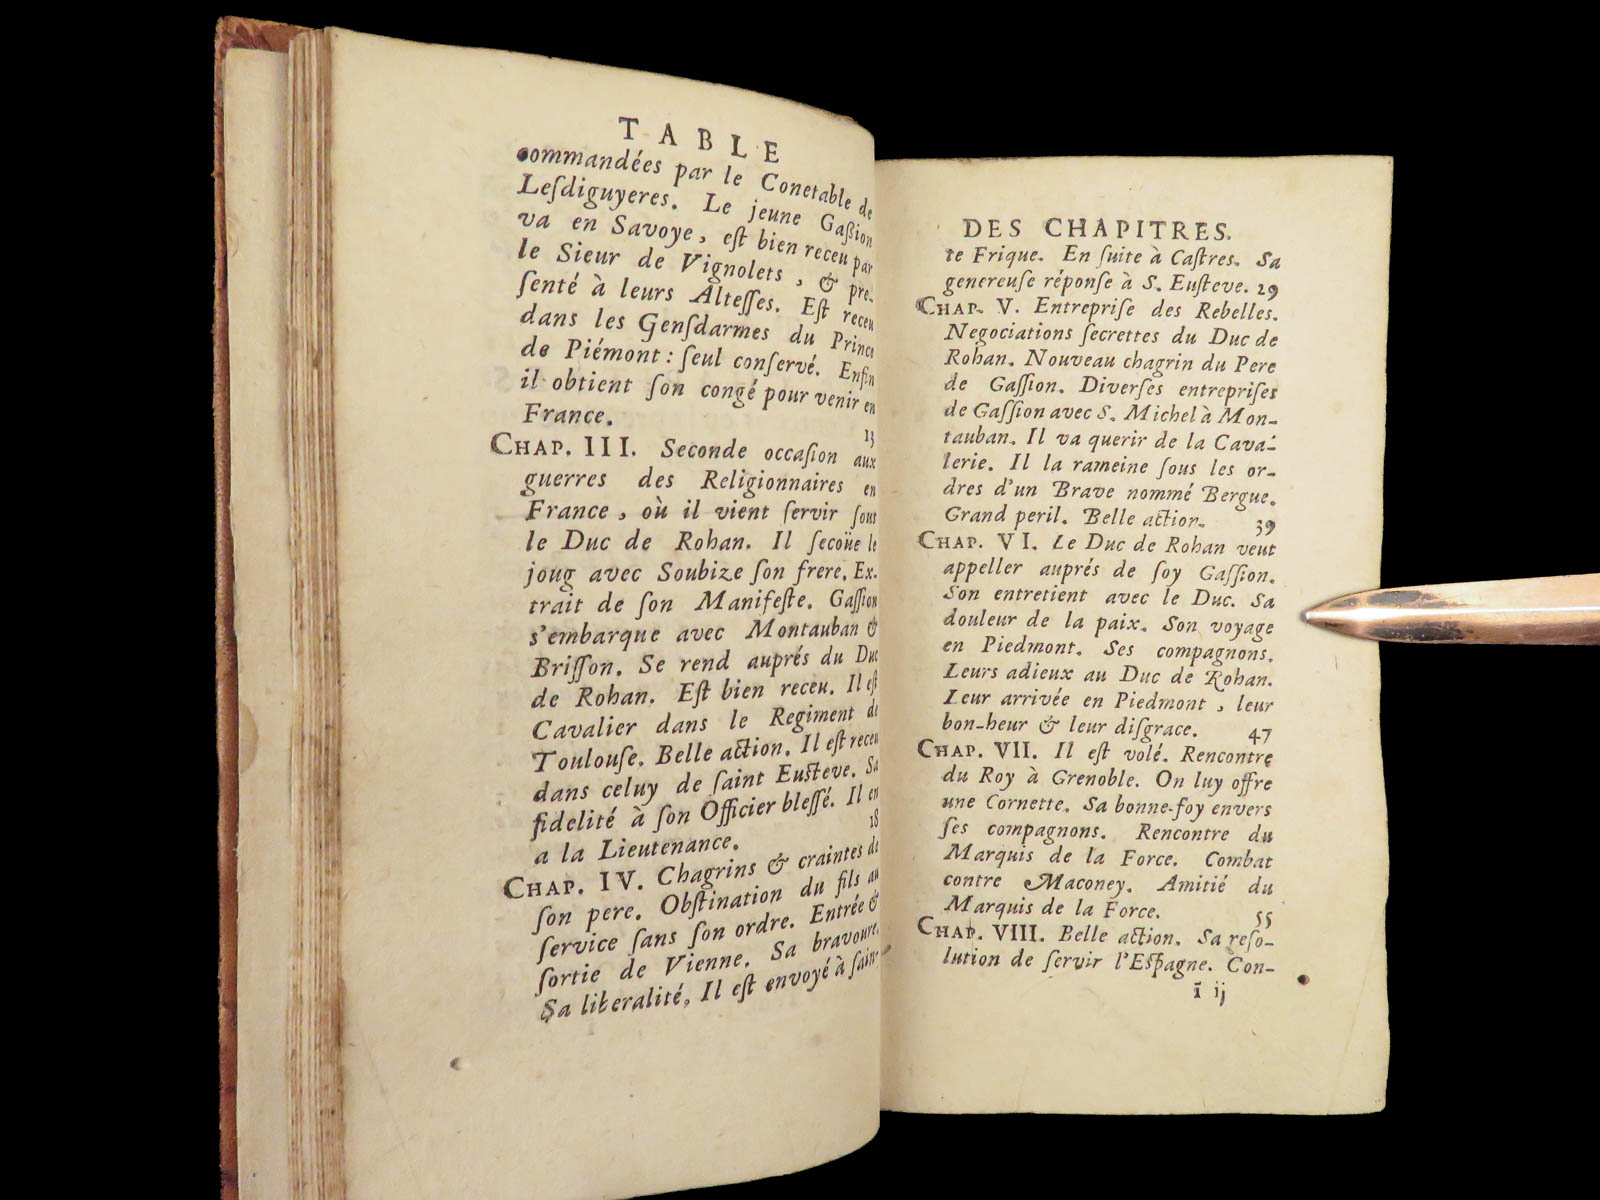 TABLE
commandées par le Conetable de
Leſdiguyeres. Le jeune Gaßion
va en Savoye, eſt bien receu par
le Sieur de Vignolets, & pre-
ſenté à leurs Alteſſes. Eſt receu
dans les Genſdarmes du Prince
de Piémont : ſeul conſervé. Enfin
il obtient ſon congé pour venir en
France. 13
CHAP. III. Seconde occaſion aux
guerres des Religionnaires en
France, où il vient ſervir ſous
le Duc de Rohan. Il ſecoüe le
joug avec Soubize ſon frere. Ex-
trait de ſon Manifeſte. Gaſſion
s'embarque avec Montauban &
Briſſon. Se rend auprés du Duc
de Rohan. Eſt bien receu. Il eſt
Cavalier dans le Regiment de
Toulouſe. Belle action. Il eſt receu
dans celuy de ſaint Euſteve. Sa
fidelité à ſon Officier bleſſé. Il en
a la Lieutenance. 18
CHAP. IV. Chagrins & craintes de
ſon pere. Obſtination du fils au
ſervice ſans ſon ordre. Entrée &
ſortie de Vienne. Sa bravoure.
Sa liberalité, Il eſt envoyé à ſain-
DES CHAPITRES.
te Frique. En ſuite à Caſtres. Sa
genereuſe réponſe à S. Euſteve. 29
CHAP. V. Entrepriſe des Rebelles.
Negociations ſecrettes du Duc de
Rohan. Nouveau chagrin du Pere
de Gaſſion. Diverſes entrepriſes
de Gaſſion avec S. Michel à Mon-
tauban. Il va querir de la Cava-
lerie. Il la rameine ſous les or-
dres d'un Brave nommé Bergue.
Grand peril. Belle action. 39
CHAP. VI. Le Duc de Rohan veut
appeller auprés de ſoy Gaſſion.
Son entretient avec le Duc. Sa
douleur de la paix. Son voyage
en Piedmont. Ses compagnons.
Leurs adieux au Duc de Rohan.
Leur arrivée en Piedmont, leur
bon-heur & leur diſgrace. 47
CHAP. VII. Il eſt volé. Rencontre
du Roy à Grenoble. On luy offre
une Cornette. Sa bonne-foy envers
ſes compagnons. Rencontre du
Marquis de la Force. Combat
contre Maconey. Amitié du
Marquis de la Force. 55
CHAP. VIII. Belle action. Sa reſo-
lution de ſervir l'Eſpagne. Con-
ī ij